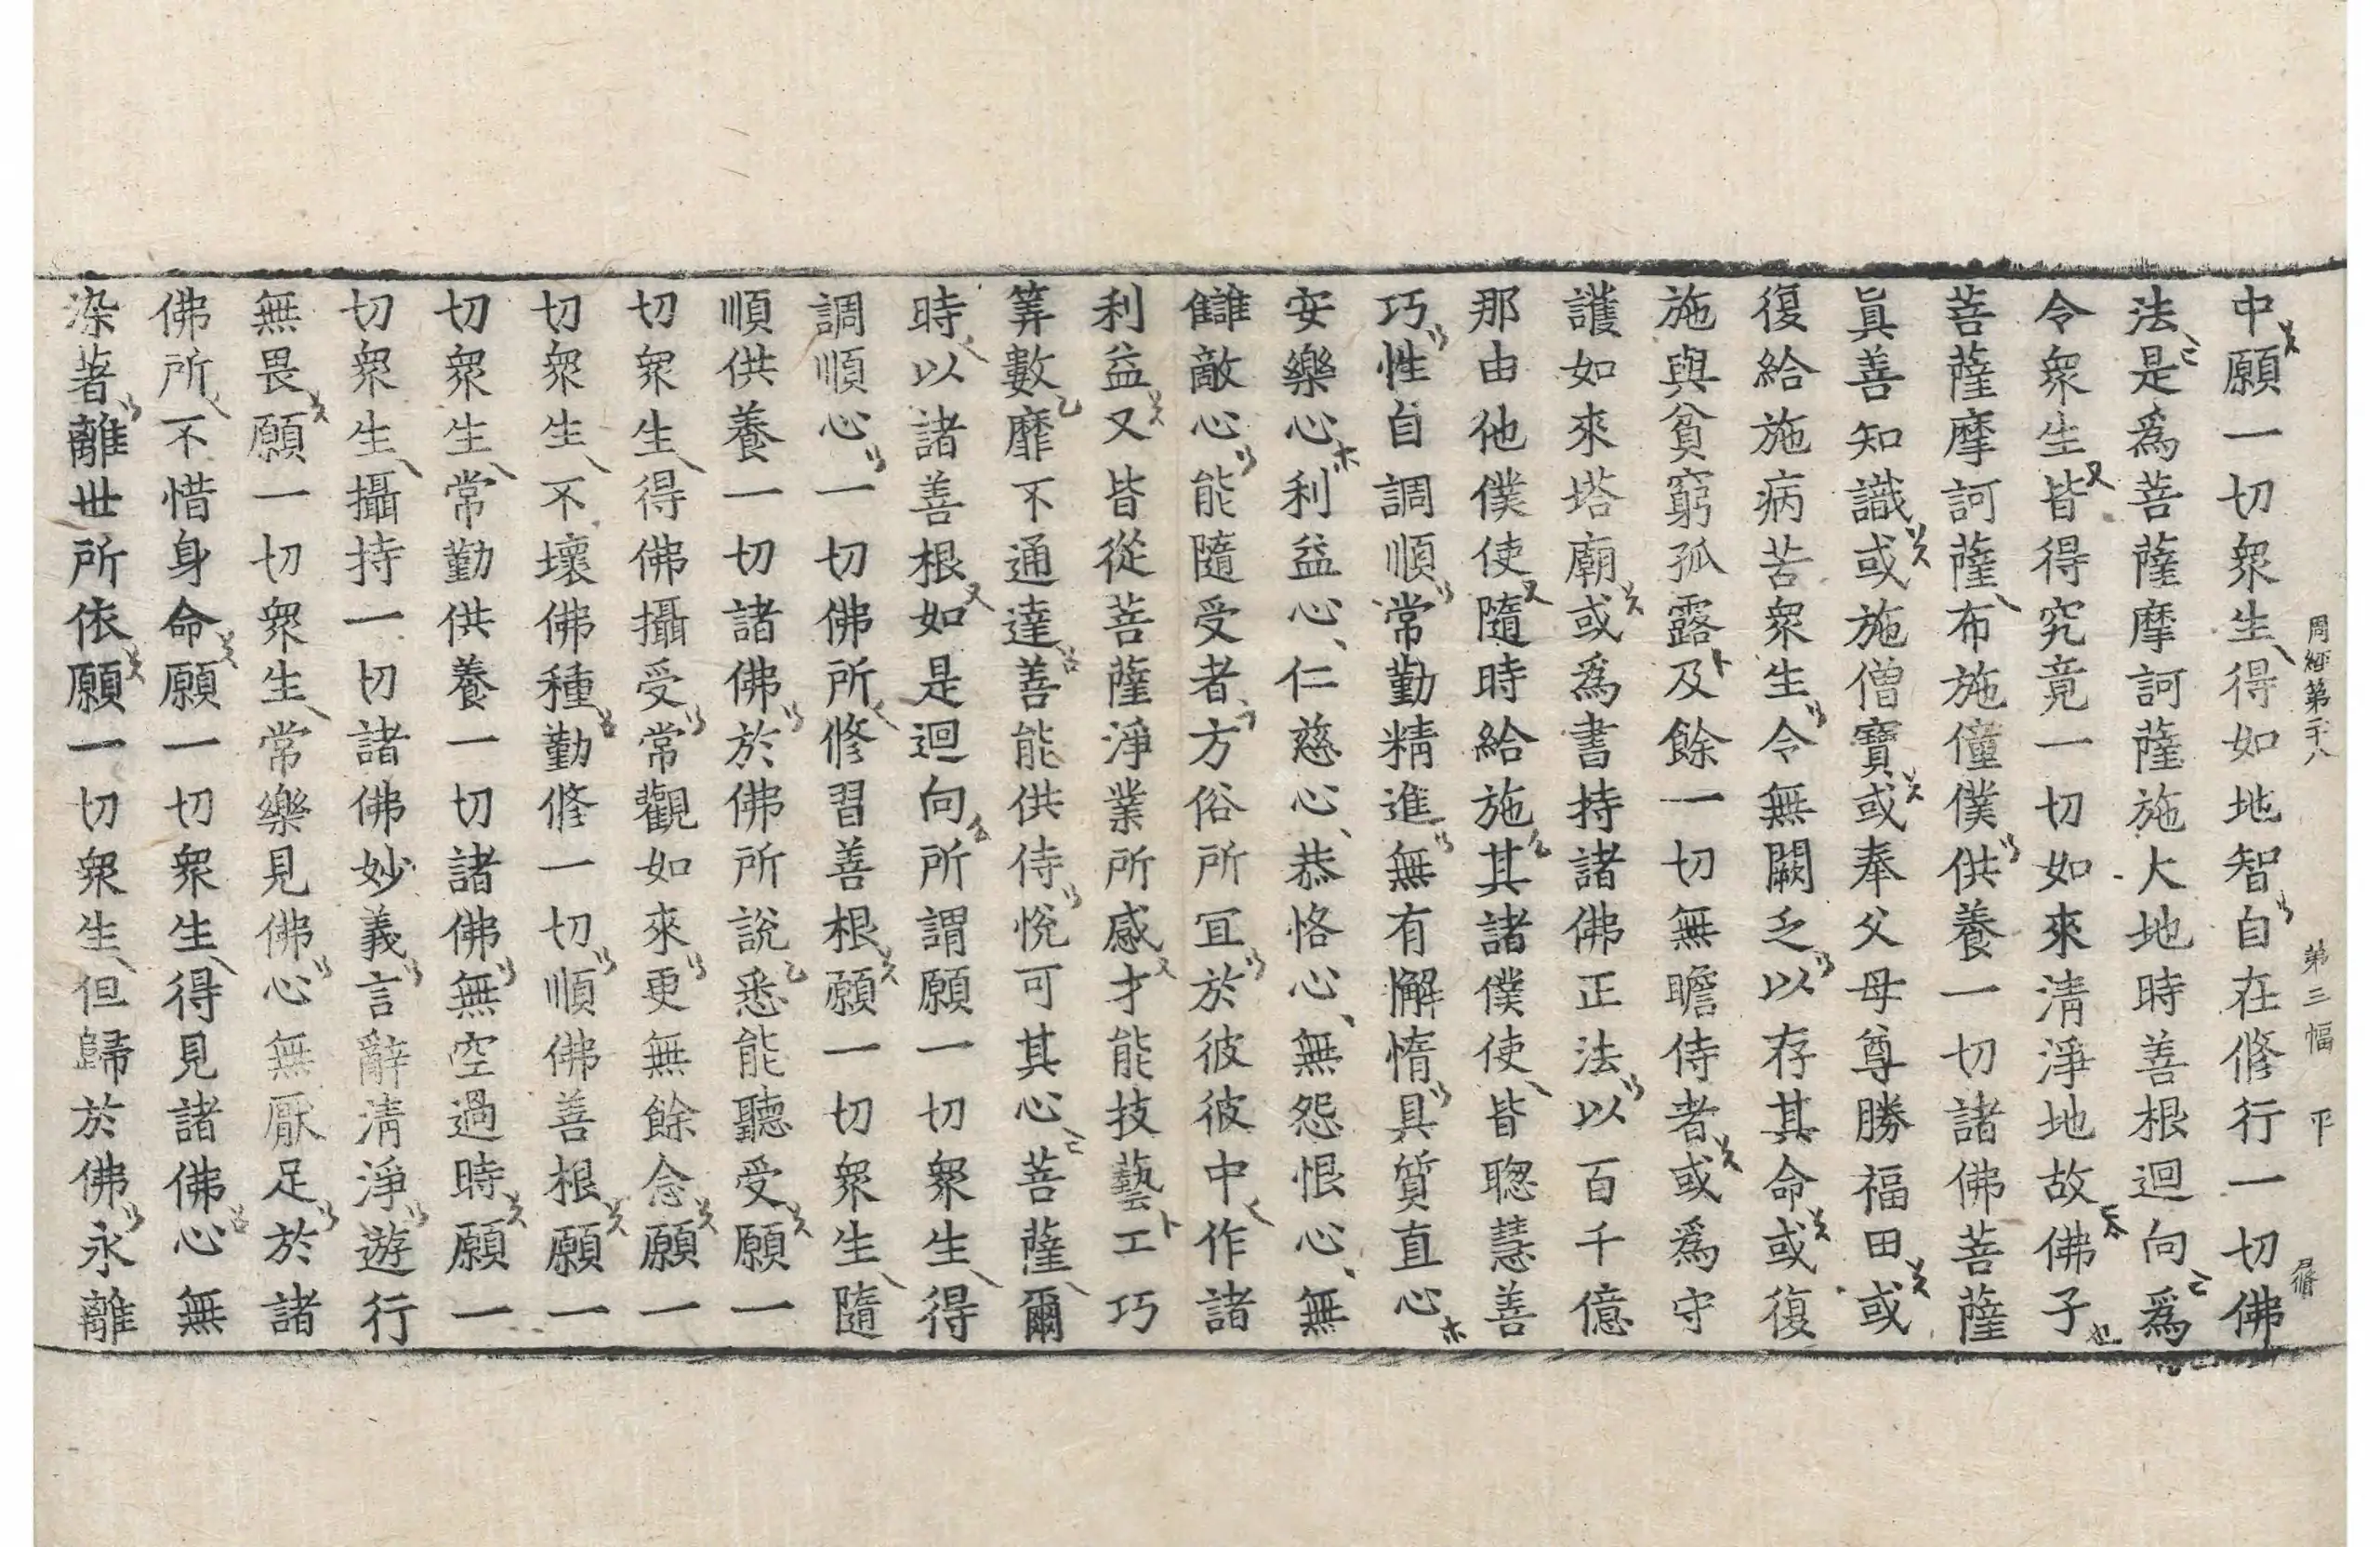 周經第二十八 第三幅 平 尸脩
中願一切衆生得如地智自在修行一切佛
法是爲菩薩摩訶薩施大地時善根迴向爲
令衆生皆得究竟一切如來淸淨地故佛子
菩薩摩訶薩布施僮僕供養一切諸佛菩薩
眞善知識或施僧寶或奉父母尊勝福田或
復給施病苦衆生令無闕乏以存其命或復
施與貧窮孤露及餘一切無瞻侍者或爲守
護如來塔廟或爲書持諸佛正法以百千億
那由他僕使隨時給施其諸僕使皆聰慧善
巧性自調順常勤精進無有懈惰具質直心
安樂心利益心仁慈心恭恪心無怨恨心無
讎敵心能隨受者方俗所宜於彼彼中作諸
利益又皆從菩薩淨業所感才能技藝工巧
筭數靡不通達善能供侍悅可其心菩薩爾
時以諸善根如是迴向所謂願一切衆生得
調順心一切佛所修習善根願一切衆生隨
順供養一切諸佛於佛所說悉能聽受願一
切衆生得佛攝受常觀如來更無餘念願一
切衆生不壞佛種勤修一切順佛善根願一
切衆生常勤供養一切諸佛無空過時願一
切衆生攝持一切諸佛妙義言辭淸淨遊行
無畏願一切衆生常樂見佛心無厭足於諸
佛所不惜身命願一切衆生得見諸佛心無
染著離世所依願一切衆生但歸於佛永離